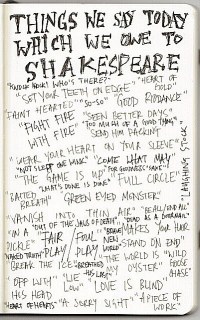 THINGS WE SAY TODAY
WHICH WE OWE TO
SHAKESPEARE
"KNOCK KNOCK! WHO'S THERE?" "HEART OF GOLD"
"SET YOUR TEETH ON EDGE"
"FAINT HEARTED" "SO-SO" "GOOD RIDDANCE"
"FIGHT FIRE WITH FIRE" "SEEN BETTER DAYS"
"TOO MUCH OF A GOOD THING"
"SEND HIM PACKING"
"WEAR YOUR HEART ON YOUR SLEEVE"
"NOT SLEPT ONE WINK" "COME WHAT MAY"
"THE GAME IS UP" "FOR GOODNESS' SAKE" "FULL CIRCLE"
"WHAT'S DONE IS DONE"
"LAUGHING STOCK"
"BATED BREATH" "GREEN EYED MONSTER"
"VANISH INTO THIN AIR" "BE ALL/END ALL"
"OUT OF THE JAWS OF DEATH" "DEAD AS A DOORNAIL"
"IN A PICKLE" "FAIR PLAY" "FOUL PLAY" "BRAVE NEW WORLD" "MAKES YOUR HAIR STAND ON END"
"NAKED TRUTH"
"BREAK THE ICE" "BREATHED HIS LAST" "THE WORLD IS MY OYSTER" "WILD GOOSE CHASE"
"OFF WITH HIS HEAD" "LIE LOW" "LOVE IS BLIND"
"HEART OF HEARTS" "A SORRY SIGHT" "A PIECE OF WORK"